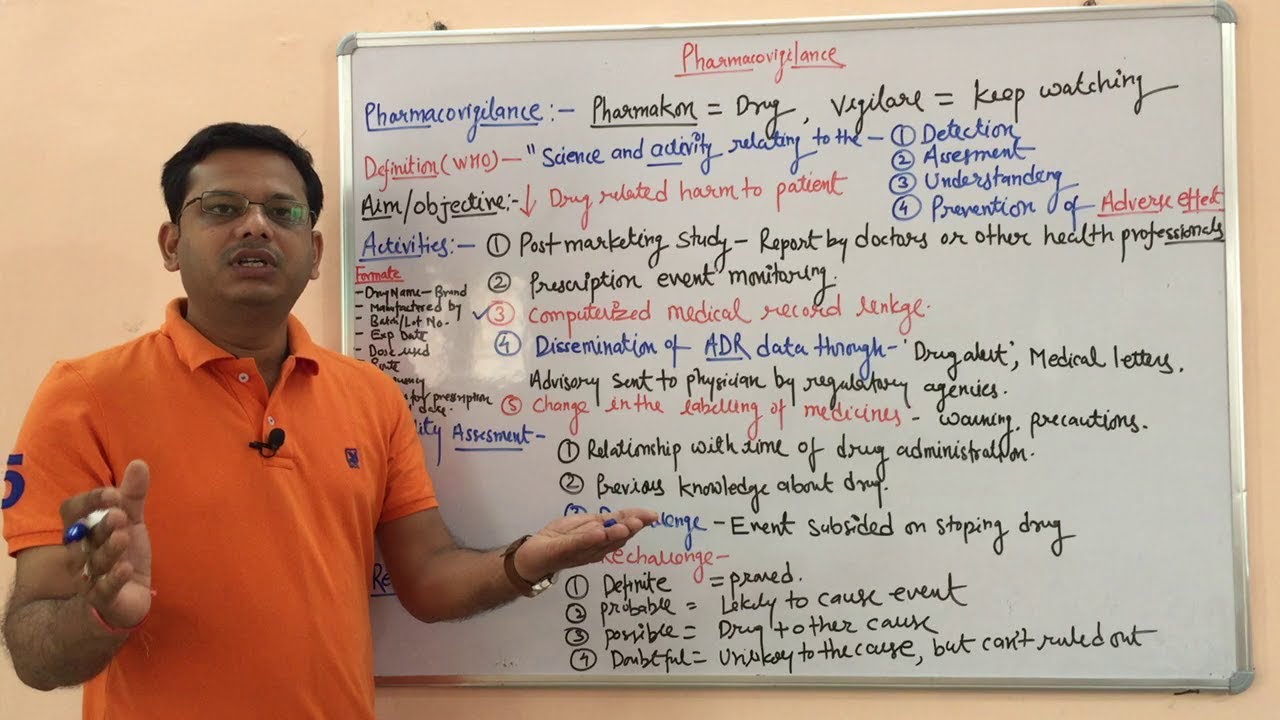 Pharmacovigilance
Pharmacovigilance:- Pharmakon = Drug, Vigilare = Keep watching
Definition (WHO) - "Science and activity relating to the - ① Detection
② Assesment
③ Understanding
④ Prevention of Adverse effect
Aim/objective:- ↓ Drug related harm to patient
Activities:- ① Post marketing study - Report by doctors or other health professionals
② Prescription event monitoring.
✓③ Computerized medical record linkge.
④ Dissemination of ADR data through - 'Drug alert', Medical letters.
Advisory sent to physician by regulatory agencies.
⑤ Change in the labelling of medicines - warning, precautions.
Formate
- Drug Name - Brand
- Manufactered by
- Batch/Lot No.
- Exp Date
- Dose used
for prescription
date.
Assesment -
① Relationship with time of drug administration.
② Previous knowledge about drug.
- Event subsided on stoping drug
challenge -
① Definite = proved.
② probable = Likely to cause event
③ possible = Drug + other cause
④ Doubtful = Unlikely to the cause, but can't ruled out
Re
5